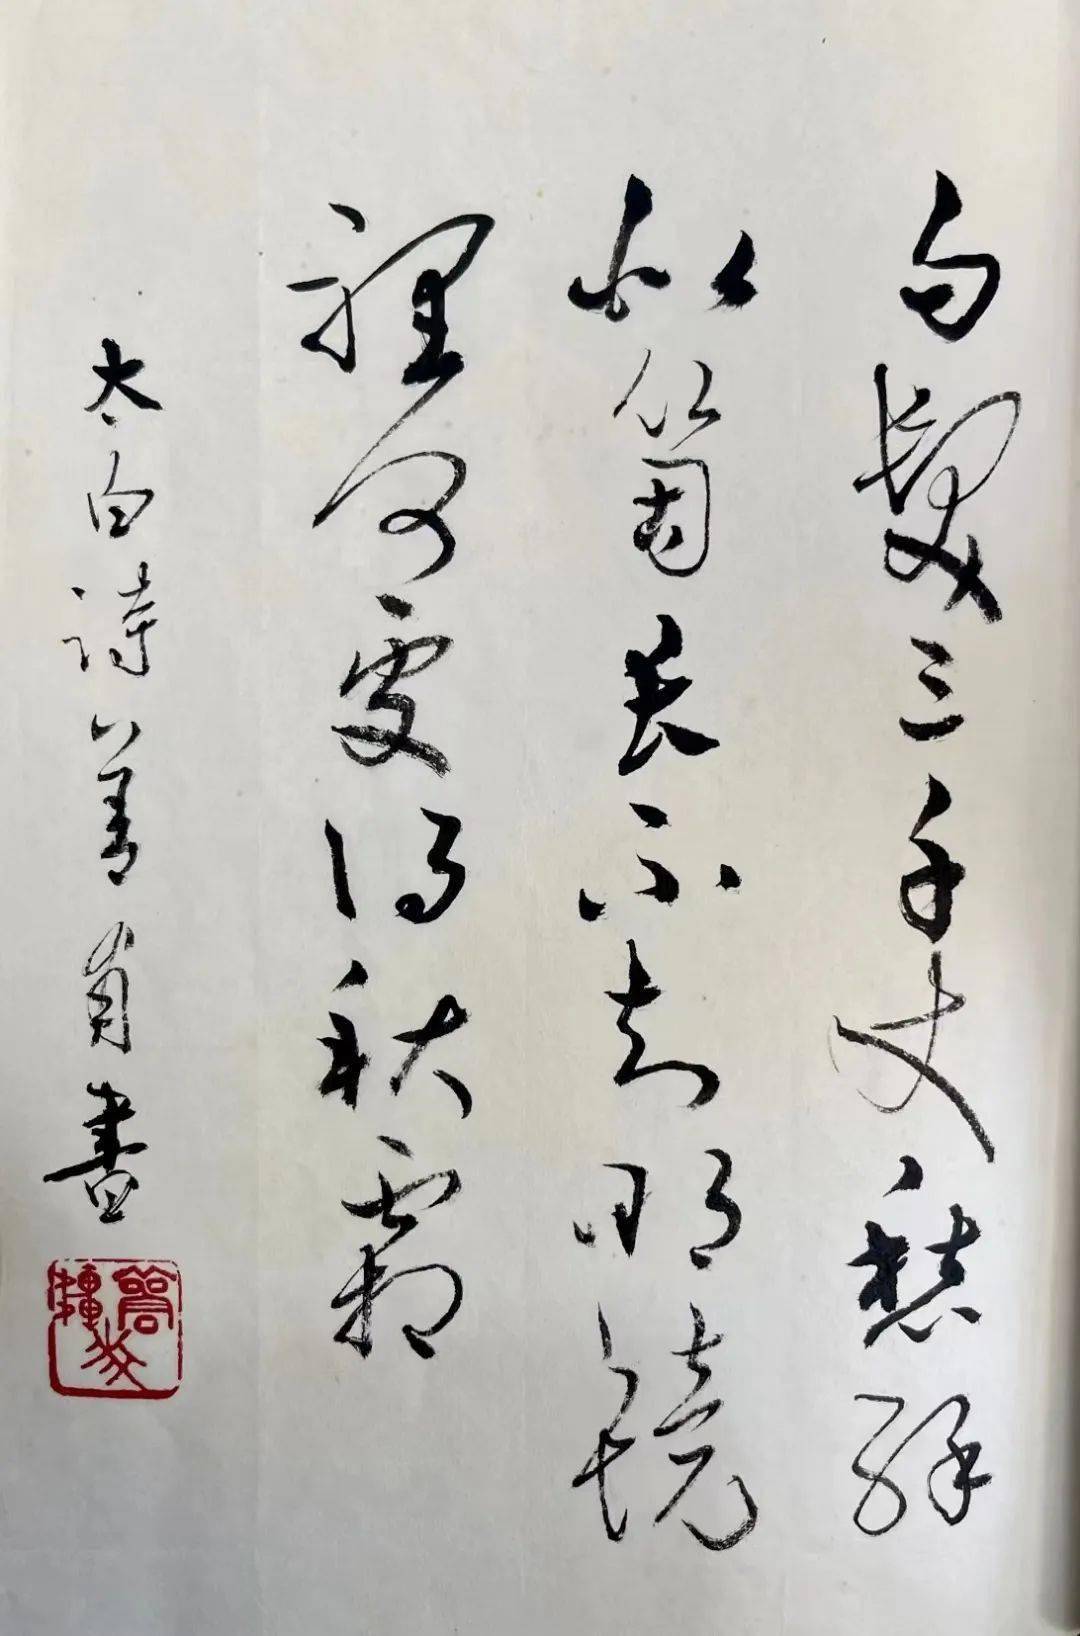 白髮三千丈愁
似箇長不知明鏡
裡何處得秋霜
太白詩書